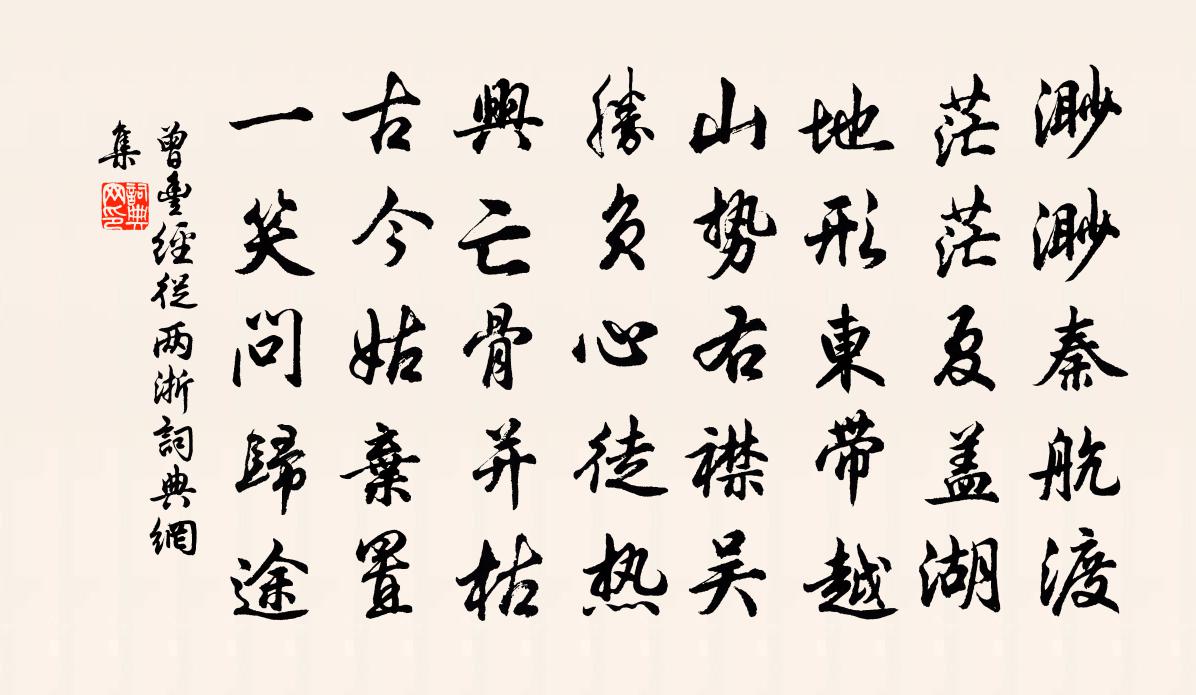 渺渺秦航渡
茫茫夏盖湖
地形東带越
山势右襟吴
勝负心徒热
興亡骨并枯
古今姑棄置
一笑问歸途
曾豊經從两浙詞典網
集
詞典网印